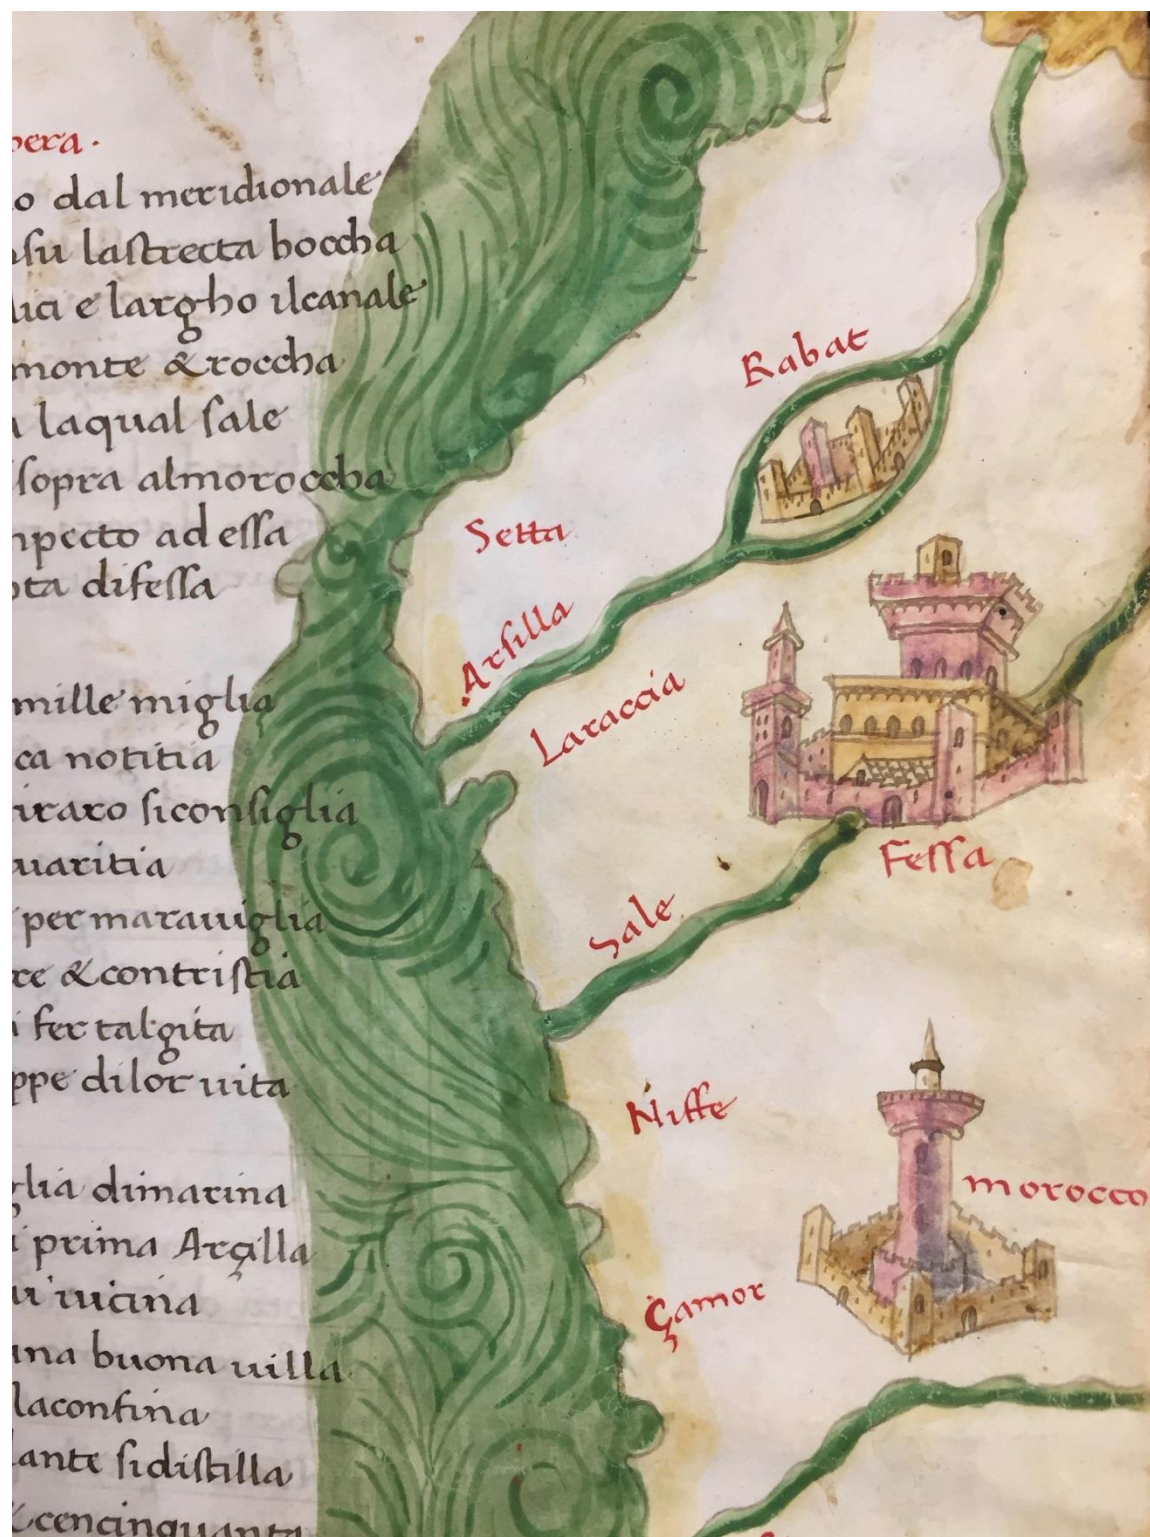 dal meridionale
lastrecta boccha
e largho ilcanale
monte & roccha
laqual sale
sopra almoroccha
ad essa
difessa
mille miglia
notitia
siconsiglia
per marauiglia
& contristia
fer talgita
dilor uita
dimarina
prima Arçilla
uicina
buona uilla
laconfina
sidistilla
cencinquanta
Rabat
Setta
Arsilla
Laraccia
Fessa
Sale
Niffe
morocco
Çamor